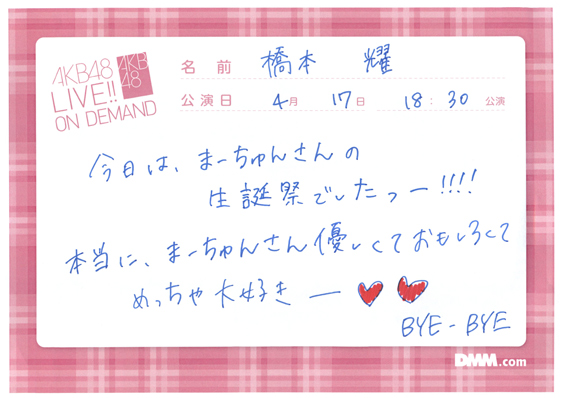 AKB48
LIVE!!
ON DEMAND
AKB
48
名前 橋本 耀
公演日 4月 17日 18:30 公演
今日は、まーちゅんさんの
生誕祭でしたっー!!!!
本当に、まーちゅんさん優しくておもしろくて
めっちゃ大好きー♥♥
BYE-BYE
DMM.com